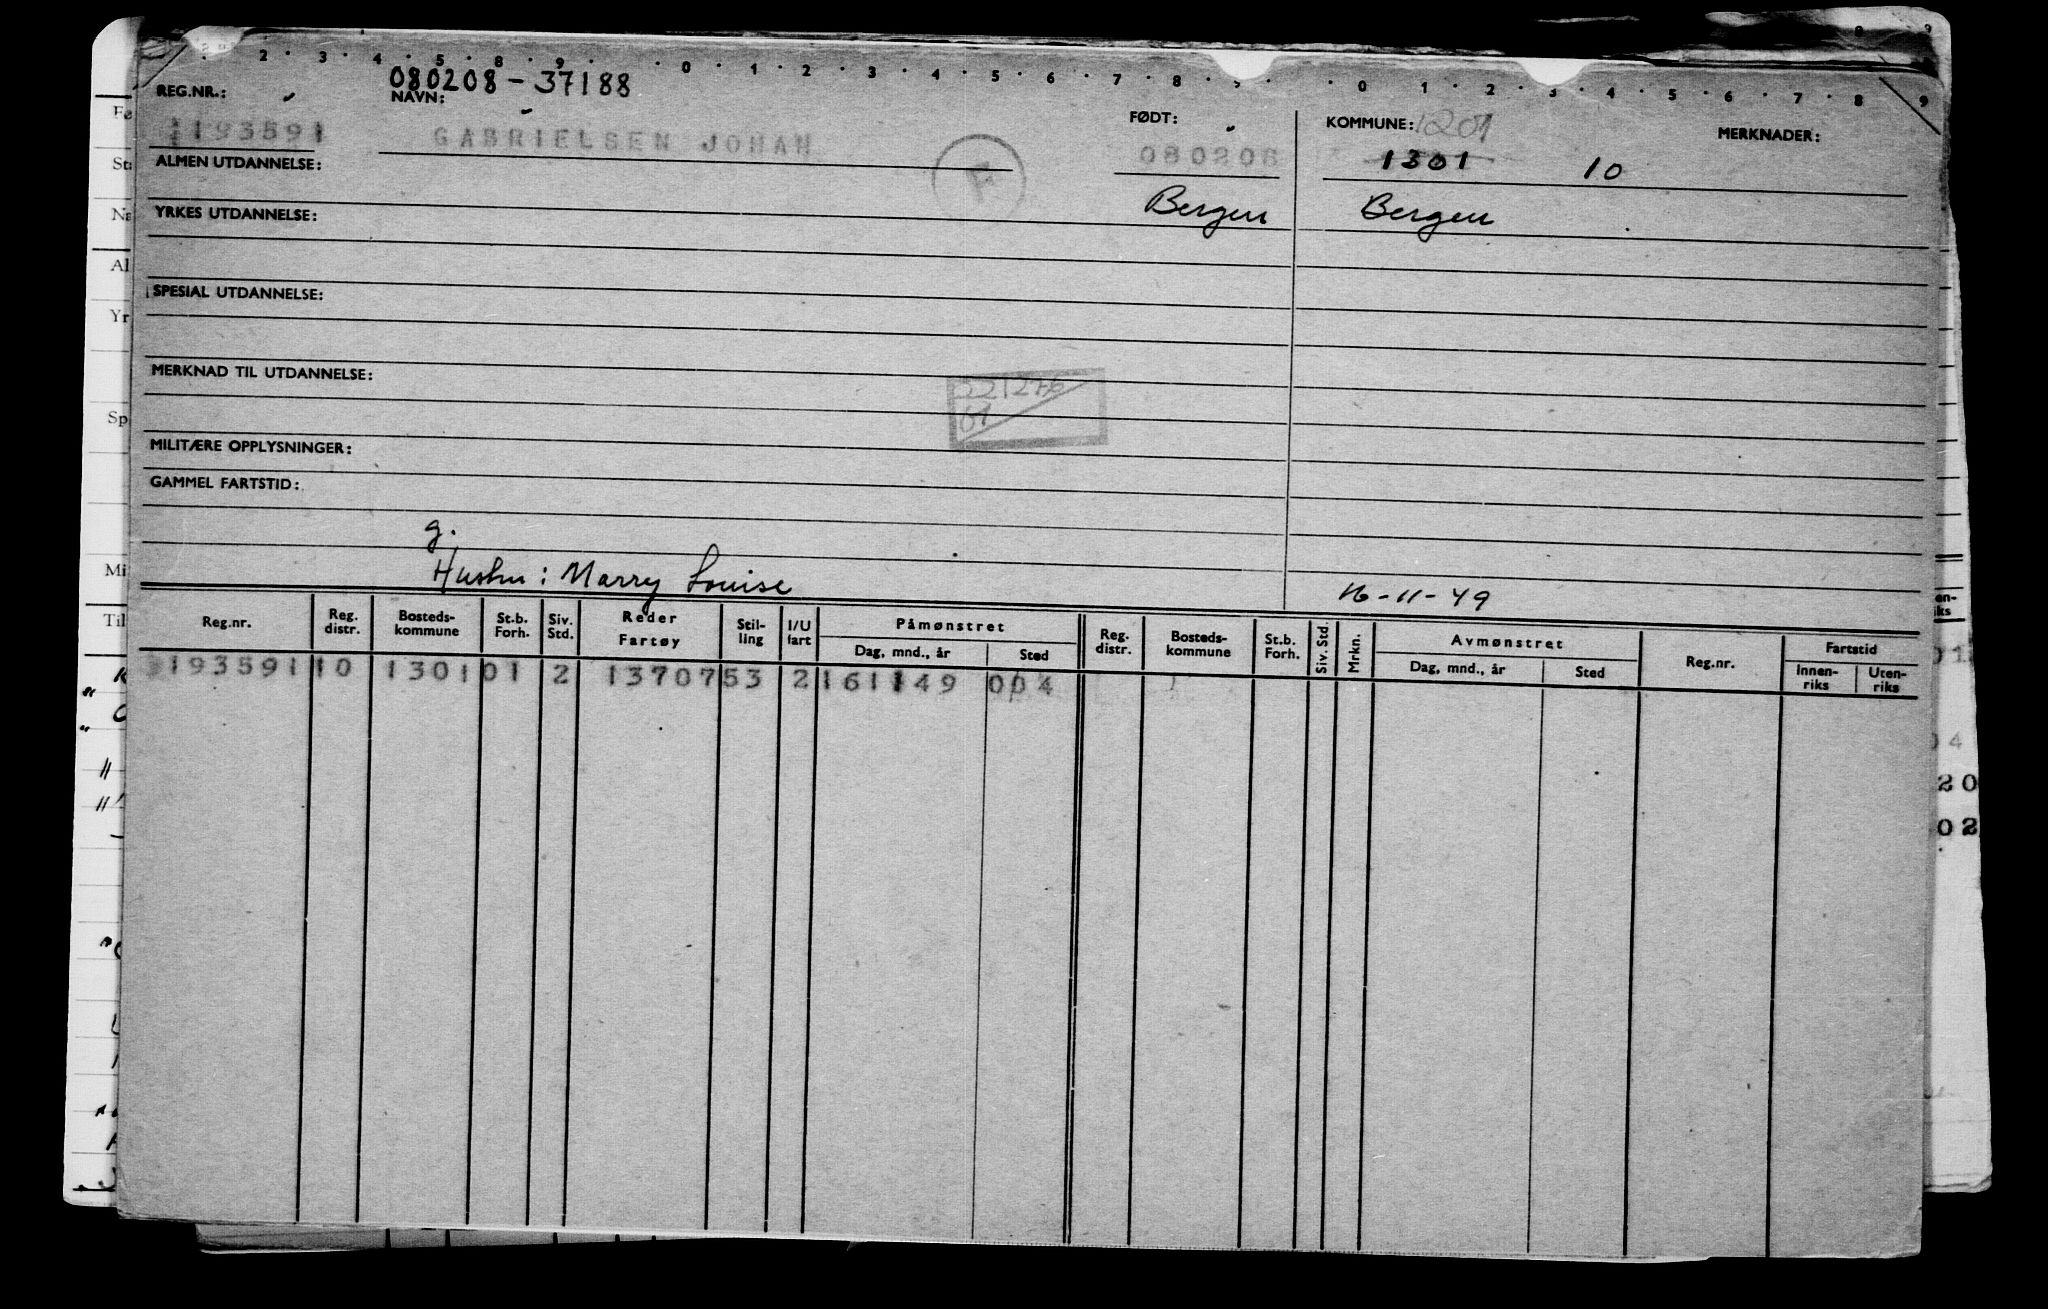 2 · 3 · 4 · 5 · 8 · 9 · · 0 · 1 · 2 · 3 · 4 · 5 · 6 · 7 · 8 · 9 · · 0 · 1 · 2 · 3 · 4 · 5 · 6 · 7 · 8 · 9
080208-37188
REG.NR.: NAVN: FØDT: KOMMUNE: 1201 MERKNADER:
193591 GABRIELSEN JOHAN 080208 1301 10
F
ALMEN UTDANNELSE:
Bergen Bergen
YRKES UTDANNELSE:
SPESIAL UTDANNELSE:
MERKNAD TIL UTDANNELSE:
221276
01
MILITÆRE OPPLYSNINGER:
GAMMEL FARTSTID:
g.
Hustru: Marry Louise 16-11-49
Reg.nr. Reg. distr. Bosteds-kommune St.b. Forh. Siv. Std. Reder Fartøy Stil-ling I/U fart Påmønstret Dag, mnd., år Sted Reg. distr. Bosteds-kommune St.b. Forh. Siv. Std. Mrkn. Avmønstret Dag, mnd., år Sted Reg.nr. Fartstid Innen-riks Uten-riks
193591 10 1301 01 2 13707 53 2 161149 004
Sp
Yr
Al
Mi
Til
04
20
02